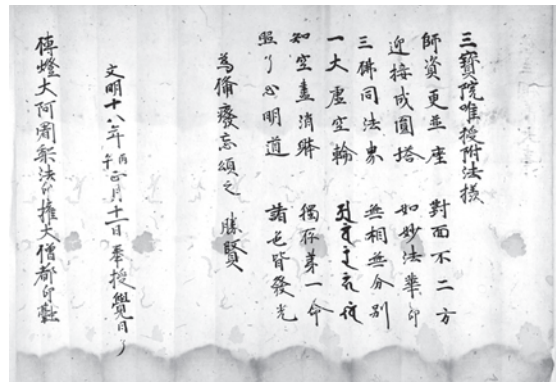 三寳院唯授附法様
師資更並座 對面不二方
迎接成圓塔 如妙法華印
三佛同法界 無相無分別
一大虚空輪
知空盡消歸 獨存第一命
照了心明道 諸色皆發光
為備癈忘頌之 勝賢
文明十八年丙午正月十一日奉授覺日了
傳燈大阿闍梨法印権大僧都